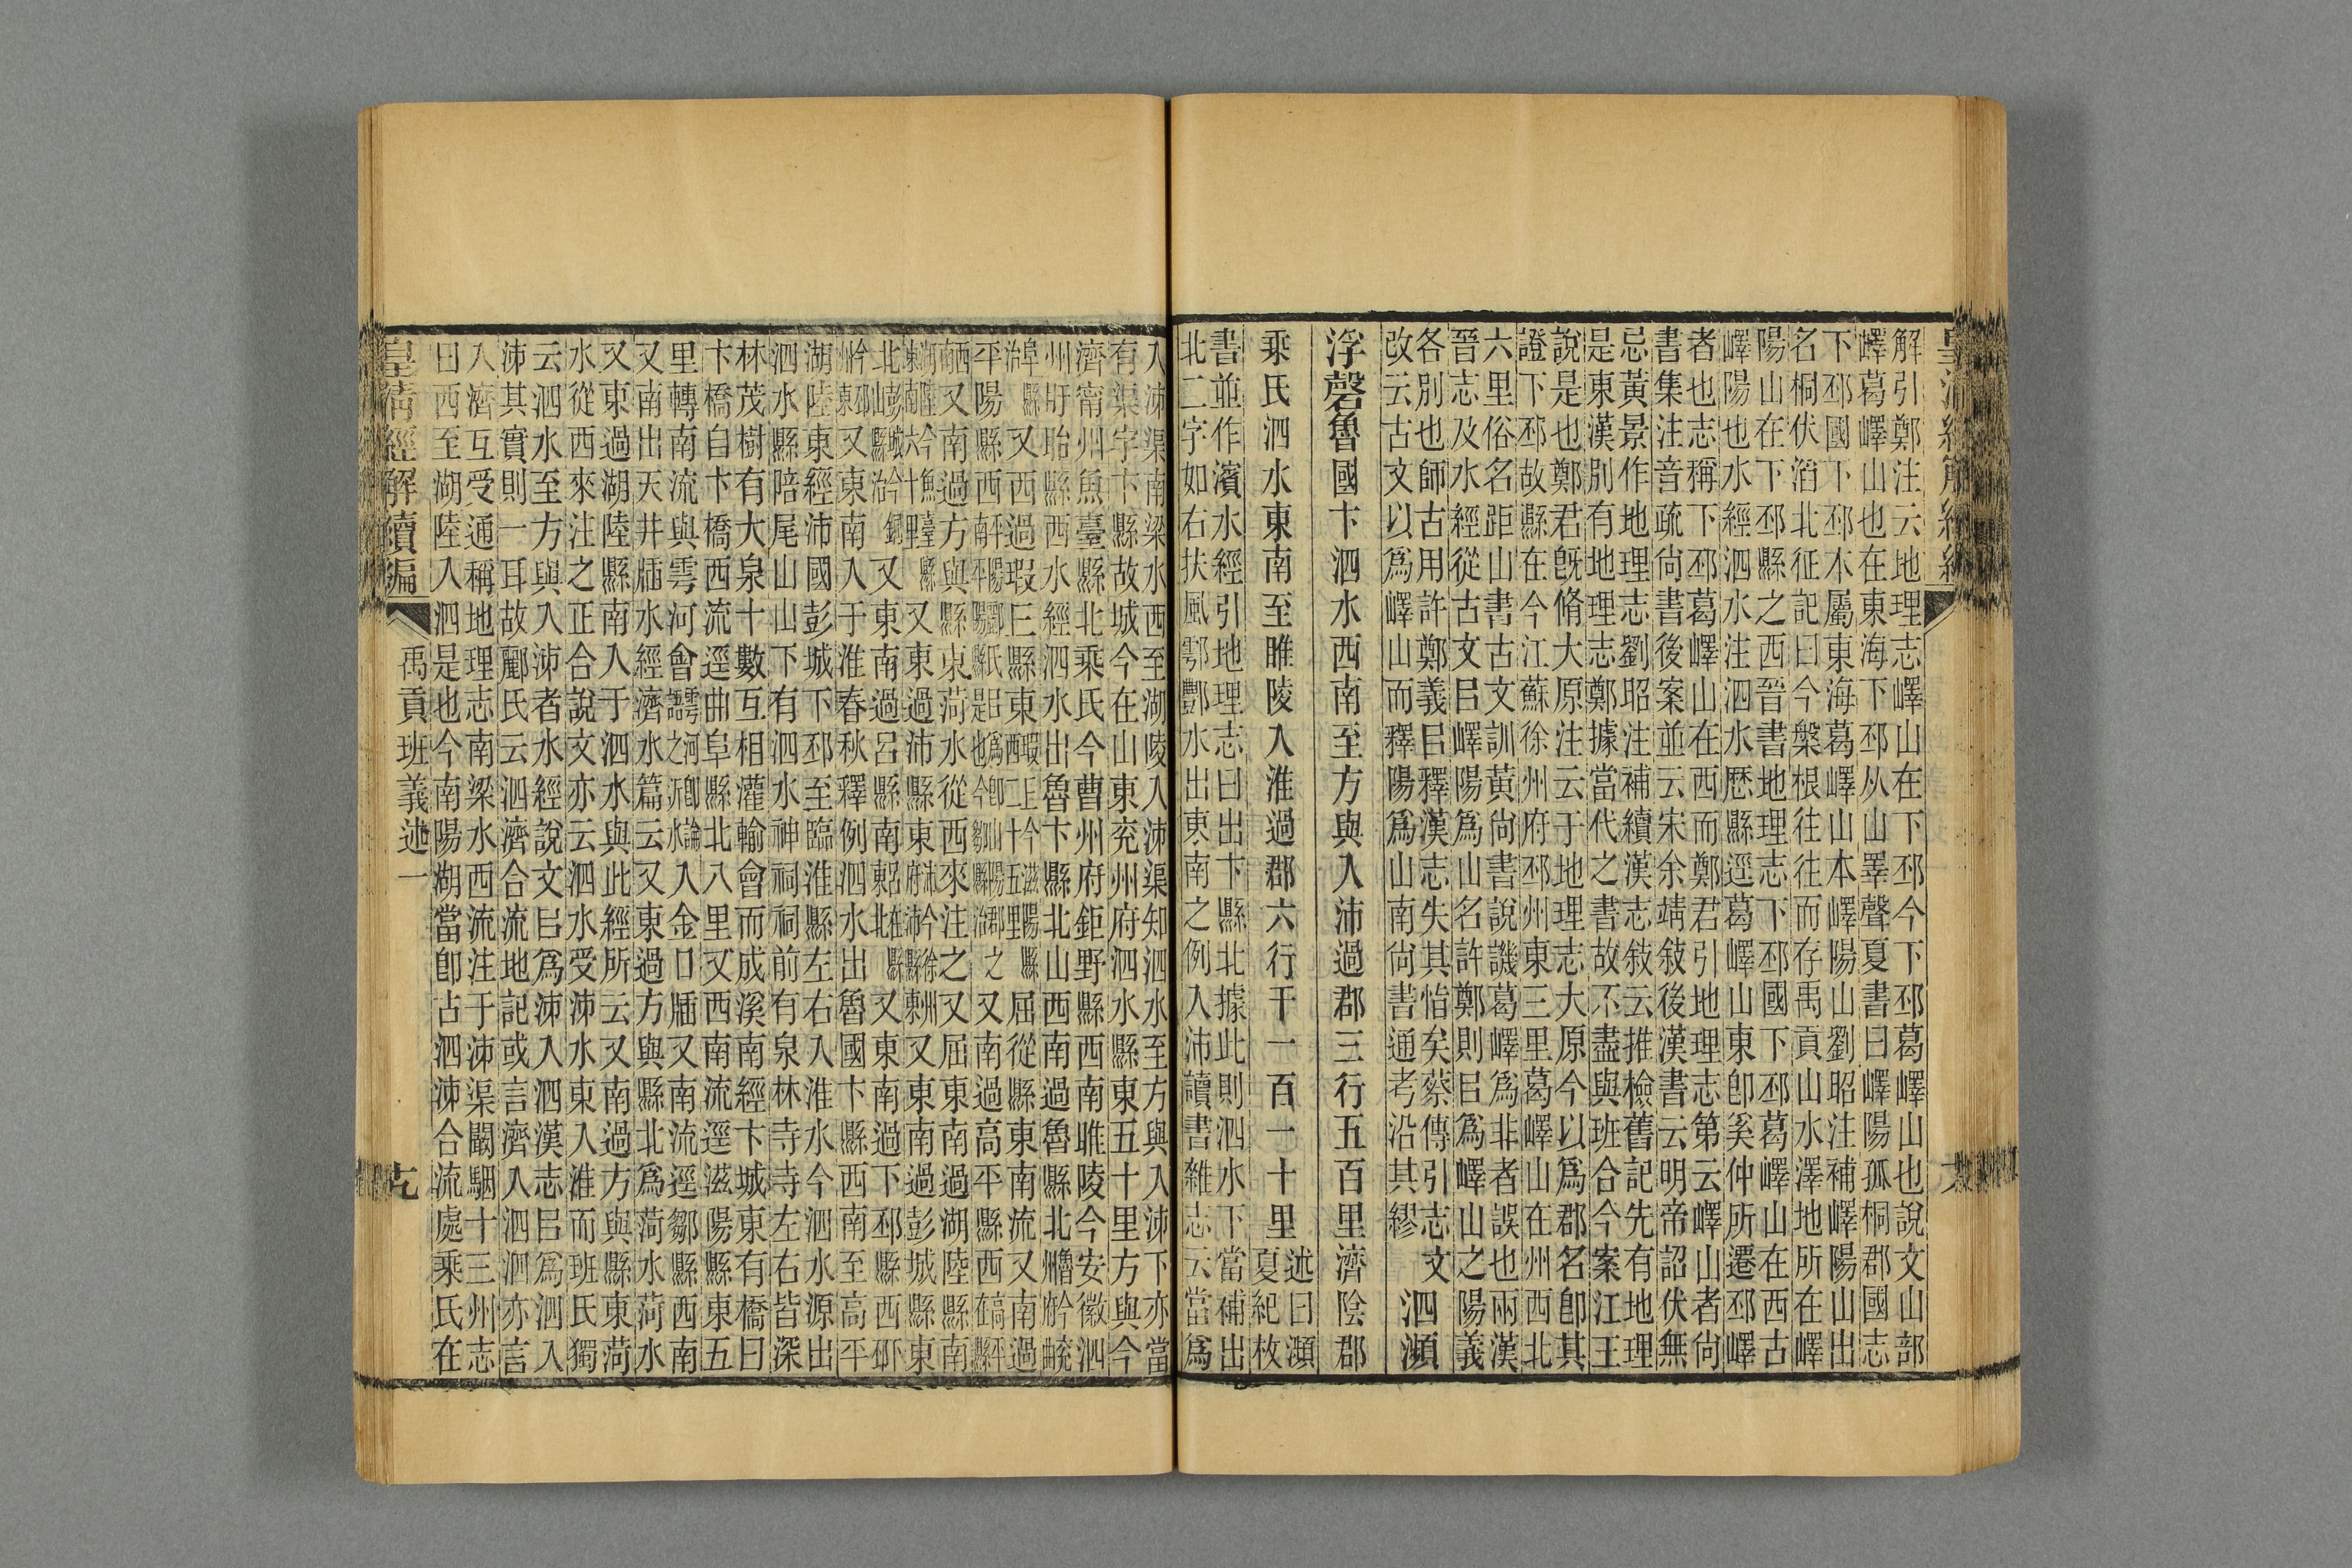 解引鄭注云地理志嶧山在下邳今下邳葛嶧山也說文山部
嶧葛嶧山也在東海下邳从山睪聲夏書曰嶧陽孤桐郡國志
下邳國下邳本屬東海葛嶧山本嶧陽山劉昭注補嶧陽山出
名桐伏滔北征記曰今槃根往往而存禹貢山水澤地所在嶧
陽山在下邳縣之西晉書地理志下邳國下邳葛嶧山在西古
嶧陽也水經泗水注泗水歷縣逕葛嶧山東卽奚仲所遷邳嶧
者也志稱下邳葛嶧山在西而鄭君引地理志第云嶧山者尙
書集注音疏尙書後案並云宋余靖敍後漢書云明帝詔伏無
忌黃景作地理志劉昭注補續漢志敍云推檢舊記先有地理
是東漢別有地理志鄭據當代之書故不盡與班合今案江王
說是也鄭君旣脩大原注云于地理志大原今以爲郡名卽其
證下邳故縣在今江蘇徐州府邳州東三里葛嶧山在州西北
六里俗名距山書古文訓黃尙書說譏葛嶧爲非者誤也兩漢
晉志及水經從古文㠯嶧陽爲山名許鄭則㠯爲嶧山之陽義
各別也師古用許鄭義㠯釋漢志失其恉矣蔡傳引志文
改云古文以爲嶧山而釋陽爲山南尙書通考沿其繆
泗瀕
浮磬魯國卞泗水西南至方與入沛過郡三行五百里濟陰郡
乘氏泗水東南至睢陵入淮過郡六行千一百一十里
述曰瀕
夏紀枚
書並作濱水經引地理志曰出卞縣北據此則泗水下當補出
北二字如右扶風鄠酆水出東南之例入沛讀書雜志云當爲
入泲渠南梁水西至湖陵入泲渠知泗水至方與入泲下亦當
有渠字卞縣故城今在山東兗州府泗水縣東五十里方與今
濟甯州魚臺縣北乘氏今曹州府鉅野縣西南睢陵今安徽泗
州盱眙縣西水經泗水出魯卞縣北山西南過魯縣北
又西過瑕丘縣東
屈從縣東南流又南過
平陽縣西
又南過高平縣西
又南過方與縣東菏水從西來注之又屈東南過湖陸縣南
又東過沛縣東
又東南過彭城縣東
北
又東南過呂縣南
又東南過下邳縣西
又東南入于淮春秋釋例泗水出魯國卞縣西南至高平
湖陸東經沛國彭城下邳至臨淮縣左右入淮水今泗水源出
泗水縣陪尾山山下有泗水神祠祠前有泉林寺寺左右皆深
林茂樹有大泉十數互相灌輸會而成溪南經卞城東有橋曰
卞橋自卞橋西流逕曲阜縣北八里又西南流逕滋陽縣東五
里轉南流與雩河會
入金口牐又南流逕鄒縣西南
又南出天井牐水經濟水篇云又東過方與縣北爲菏水菏水
又東過湖陸縣南入于泗水與此經所云又南過方與縣東菏
水從西來注之正合說文亦云泗水受泲水東入淮而班氏獨
云泗水至方與入泲者水經說文㠯爲泲入泗漢志㠯爲泗入
泲其實則一耳故酈氏云泗濟合流地記或言濟入泗泗亦言
入濟互受通稱地理志南梁水西流注于泲渠闞駰十三州志
曰西至湖陵入泗是也今南陽湖當卽古泗泲合流處乘氏在
皇淸經解續編
禹貢班義述一